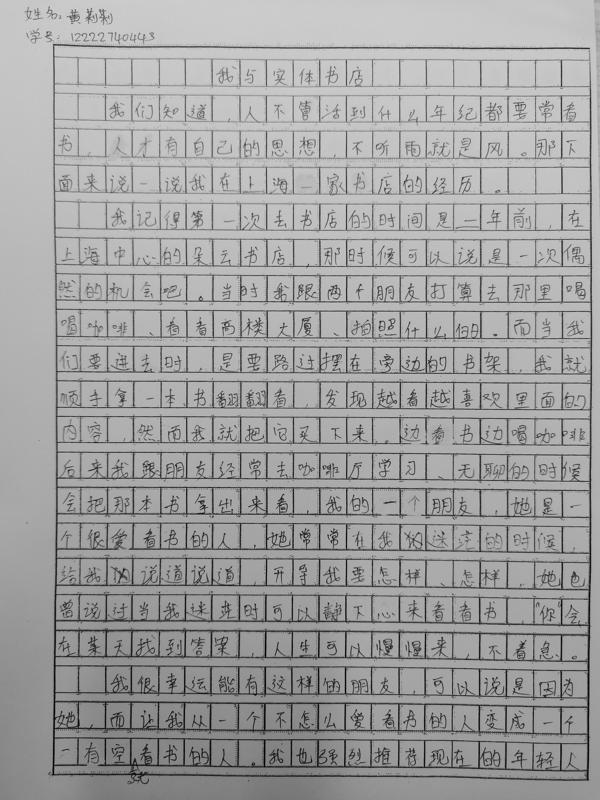 姓名：黄莉莉
学号：12222740443
我与实体书店
我们知道，人不管活到什么年纪都要常看
书，人才有自己的思想，不听雨就是风。那下
面来说一说我在上海一家书店的经历。
我记得第一次去书店的时间是一年前，在
上海中心的朵云书店，那时候可以说是一次偶
然的机会吧。当时我跟两个朋友打算去那里喝
喝咖啡、看看高楼大厦、拍照什么的。而当我
们要进去时，是要路过摆在旁边的书架，我就
顺手拿一本书翻翻看，发现越看越喜欢里面的
内容，然而我就把它买下来。边看书边喝咖啡
后来我跟朋友经常去咖啡厅学习、无聊的时候
会把那本书拿出来看，我的一个朋友，她是一
个很爱看书的人，她常常在我迷茫的时候，
给我说道说道，开导我要怎样、怎样，她也
曾说过当我迷茫时可以静下心来看看书，“你”会
在某天找到答案，人生可以慢慢来，不着急。
我很幸运能有这样的朋友，可以说是因为
她，而让我从一个不怎么爱看书的人变成一个
一有空就看书的人。我也强烈推荐现在的年轻人